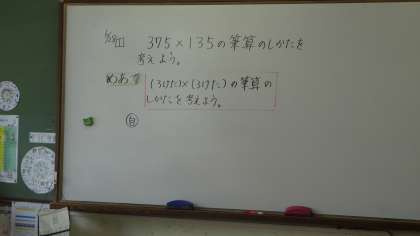 375×135の筆算のしかたを
考えよう。
めあて
(3けた)×(3けた)の筆算の
しかたを考えよう。
自